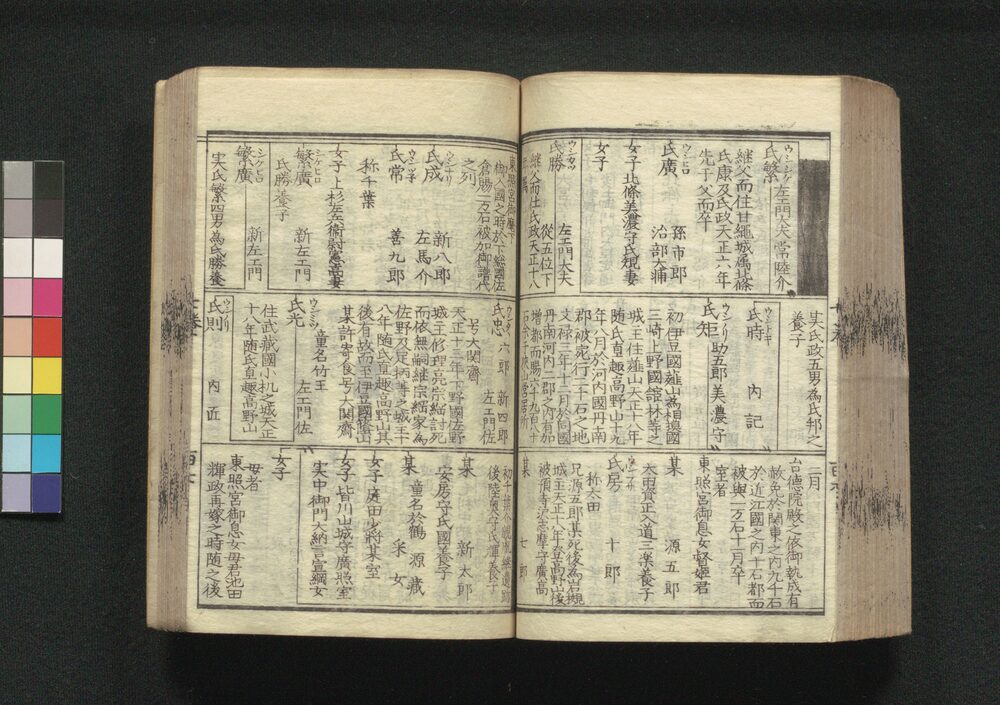 氏繁 左エ門大夫 常陸介
継父而住甘縄城属北條
氏康及氏政天正六年
先于父而卒
氏廣 孫市郎
治部大輔
女子 北條美濃守氏規妻
女子
氏勝 左エ門大夫
從五位下
継父而仕氏政天正十八
実氏政五男為氏邦之
養子
氏時 内記
氏矩 助五郎 美濃守
初伊豆國韮山為相模國
三崎上野國舘林等之
城主住韮山天正十八年
随氏直趣高野山十九
年八月於河内國丹南
郡被宛行二千石之地
文禄三年十二月於同國
丹南河内二郡之内有加
増都而賜六千九百八十
二月
台徳院殿之依御執成有
赦免於関東之内九千石
於近江國之内千石都而
被與一万石十一月卒
室者
東照宮御息女督姫君
某 源五郎
太田源資正入道三楽養子
氏房 十郎
称太田
兄源五郎某死後為岩槻
城主天正十八年登高野山後
被預寺沢志摩守廣高
某 七郎
東照宮御麾下
御入國之時於下総國佐
倉賜一万石被加御譜代
之列
氏成 新八郎
左馬介
氏常 善九郎
称千葉
女子 上杉左衛門尉憲高妻
繁廣 新左エ門
氏勝養子
繁廣 新左エ門
実氏繁四男為氏勝養
氏忠 六郎 新四郎
左エ門佐
号大関斎
天正十三年下野國佐野
城主修理亮宗綱討死
而依無嗣継宗綱家為
佐野及足柄等之城主十
八年随氏直趣高野山其
後有故而至伊豆國
某許寄食号大関斎
氏光 左エ門佐
童名竹王
住武蔵國小机之城天正
十八年随氏直趣高野山
氏則 内匠
後陸奥守氏輝養子
某 新太郎
安房守氏國養子
某 源蔵
童名於鶴
某 采女
女子 庭田少将某室
女子 皆川山城守廣照室
実中御門大納言宣綱女
女子
母者
東照宮御息女毎君池田
輝政再嫁之時随之後